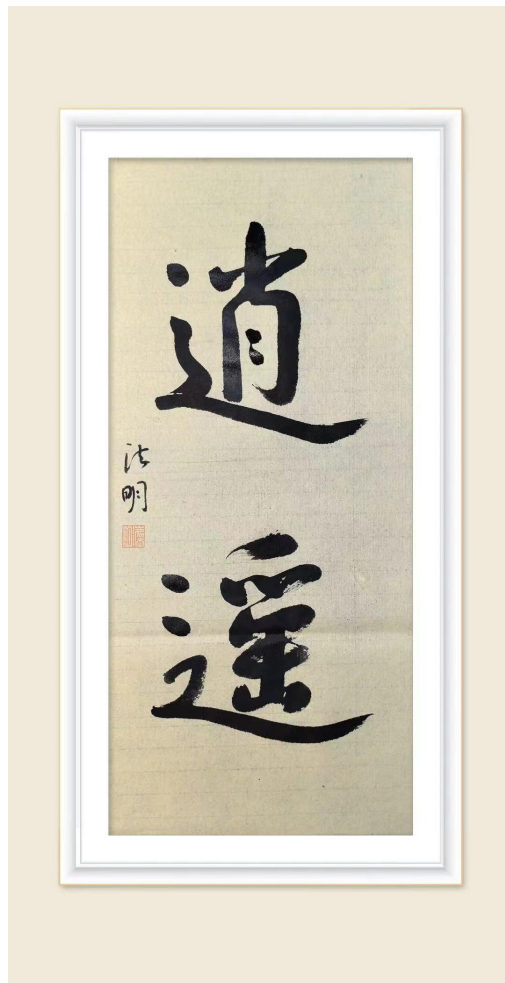 逍遥
法明